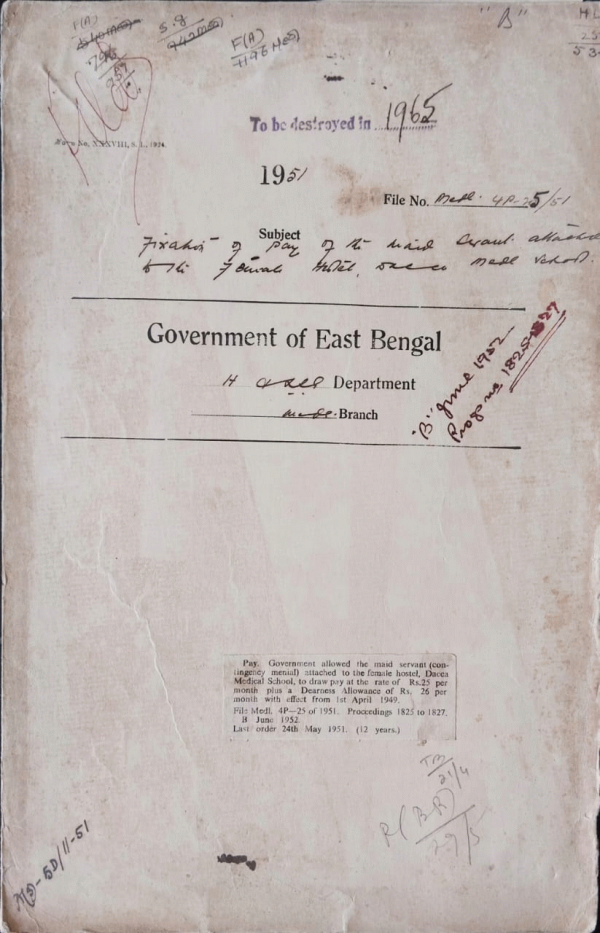 F(A)
5.8
F(A)
"B"
1196 Med)
To be destroyed in 1965
Form No. XXXVIII, S. I., 1924.
1951
File No. Medl. 4P-25/51
Subject
Fixation of pay of the maid servant attached
to the Female Hostel, Dacca Medl School.
Government of East Bengal
H Department
Medl. Branch
"B" June 1952
Progs no 1825-1827
Pay. Government allowed the maid servant (con-
tingency menial) attached to the female hostel, Dacca
Medical School, to draw pay at the rate of Rs.25 per
month plus a Dearness Allowance of Rs. 26 per
month with effect from 1st April 1949.
File Medl. 4P—25 of 1951. Proceedings 1825 to 1827.
B June 1952.
Last order 24th May 1951. (12 years.)
21/4
R(BB)
29/5